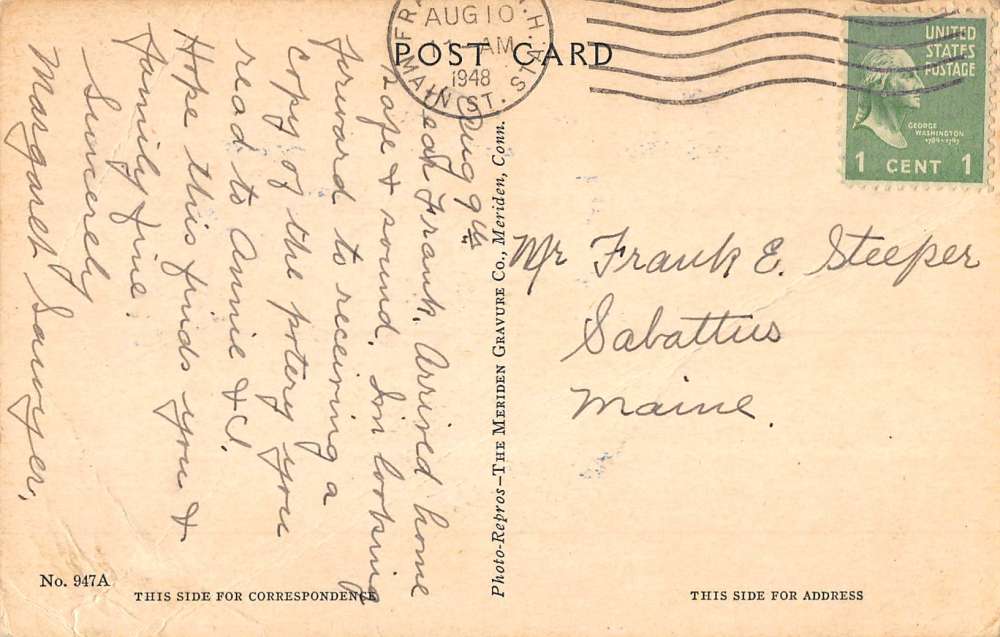 POST CARD
AUG 10
AM
1948
MAIN ST. STA.
UNITED
STATES
POSTAGE
GEORGE
WASHINGTON
1789-1797
1 CENT 1
Aug 9th
Dear Frank, Arrived home
safe & sound. Im looking
forward to receiving a
copy of the potery you
read to Annie & I.
Hope this finds you &
family fine.
Sincerely
Margaret Sawyer,
Photo-Repros—THE MERIDEN GRAVURE CO., Meriden, Conn.
Mr Frank E. Steeper
Sabattus
Maine.
No. 947A
THIS SIDE FOR CORRESPONDENCE
THIS SIDE FOR ADDRESS